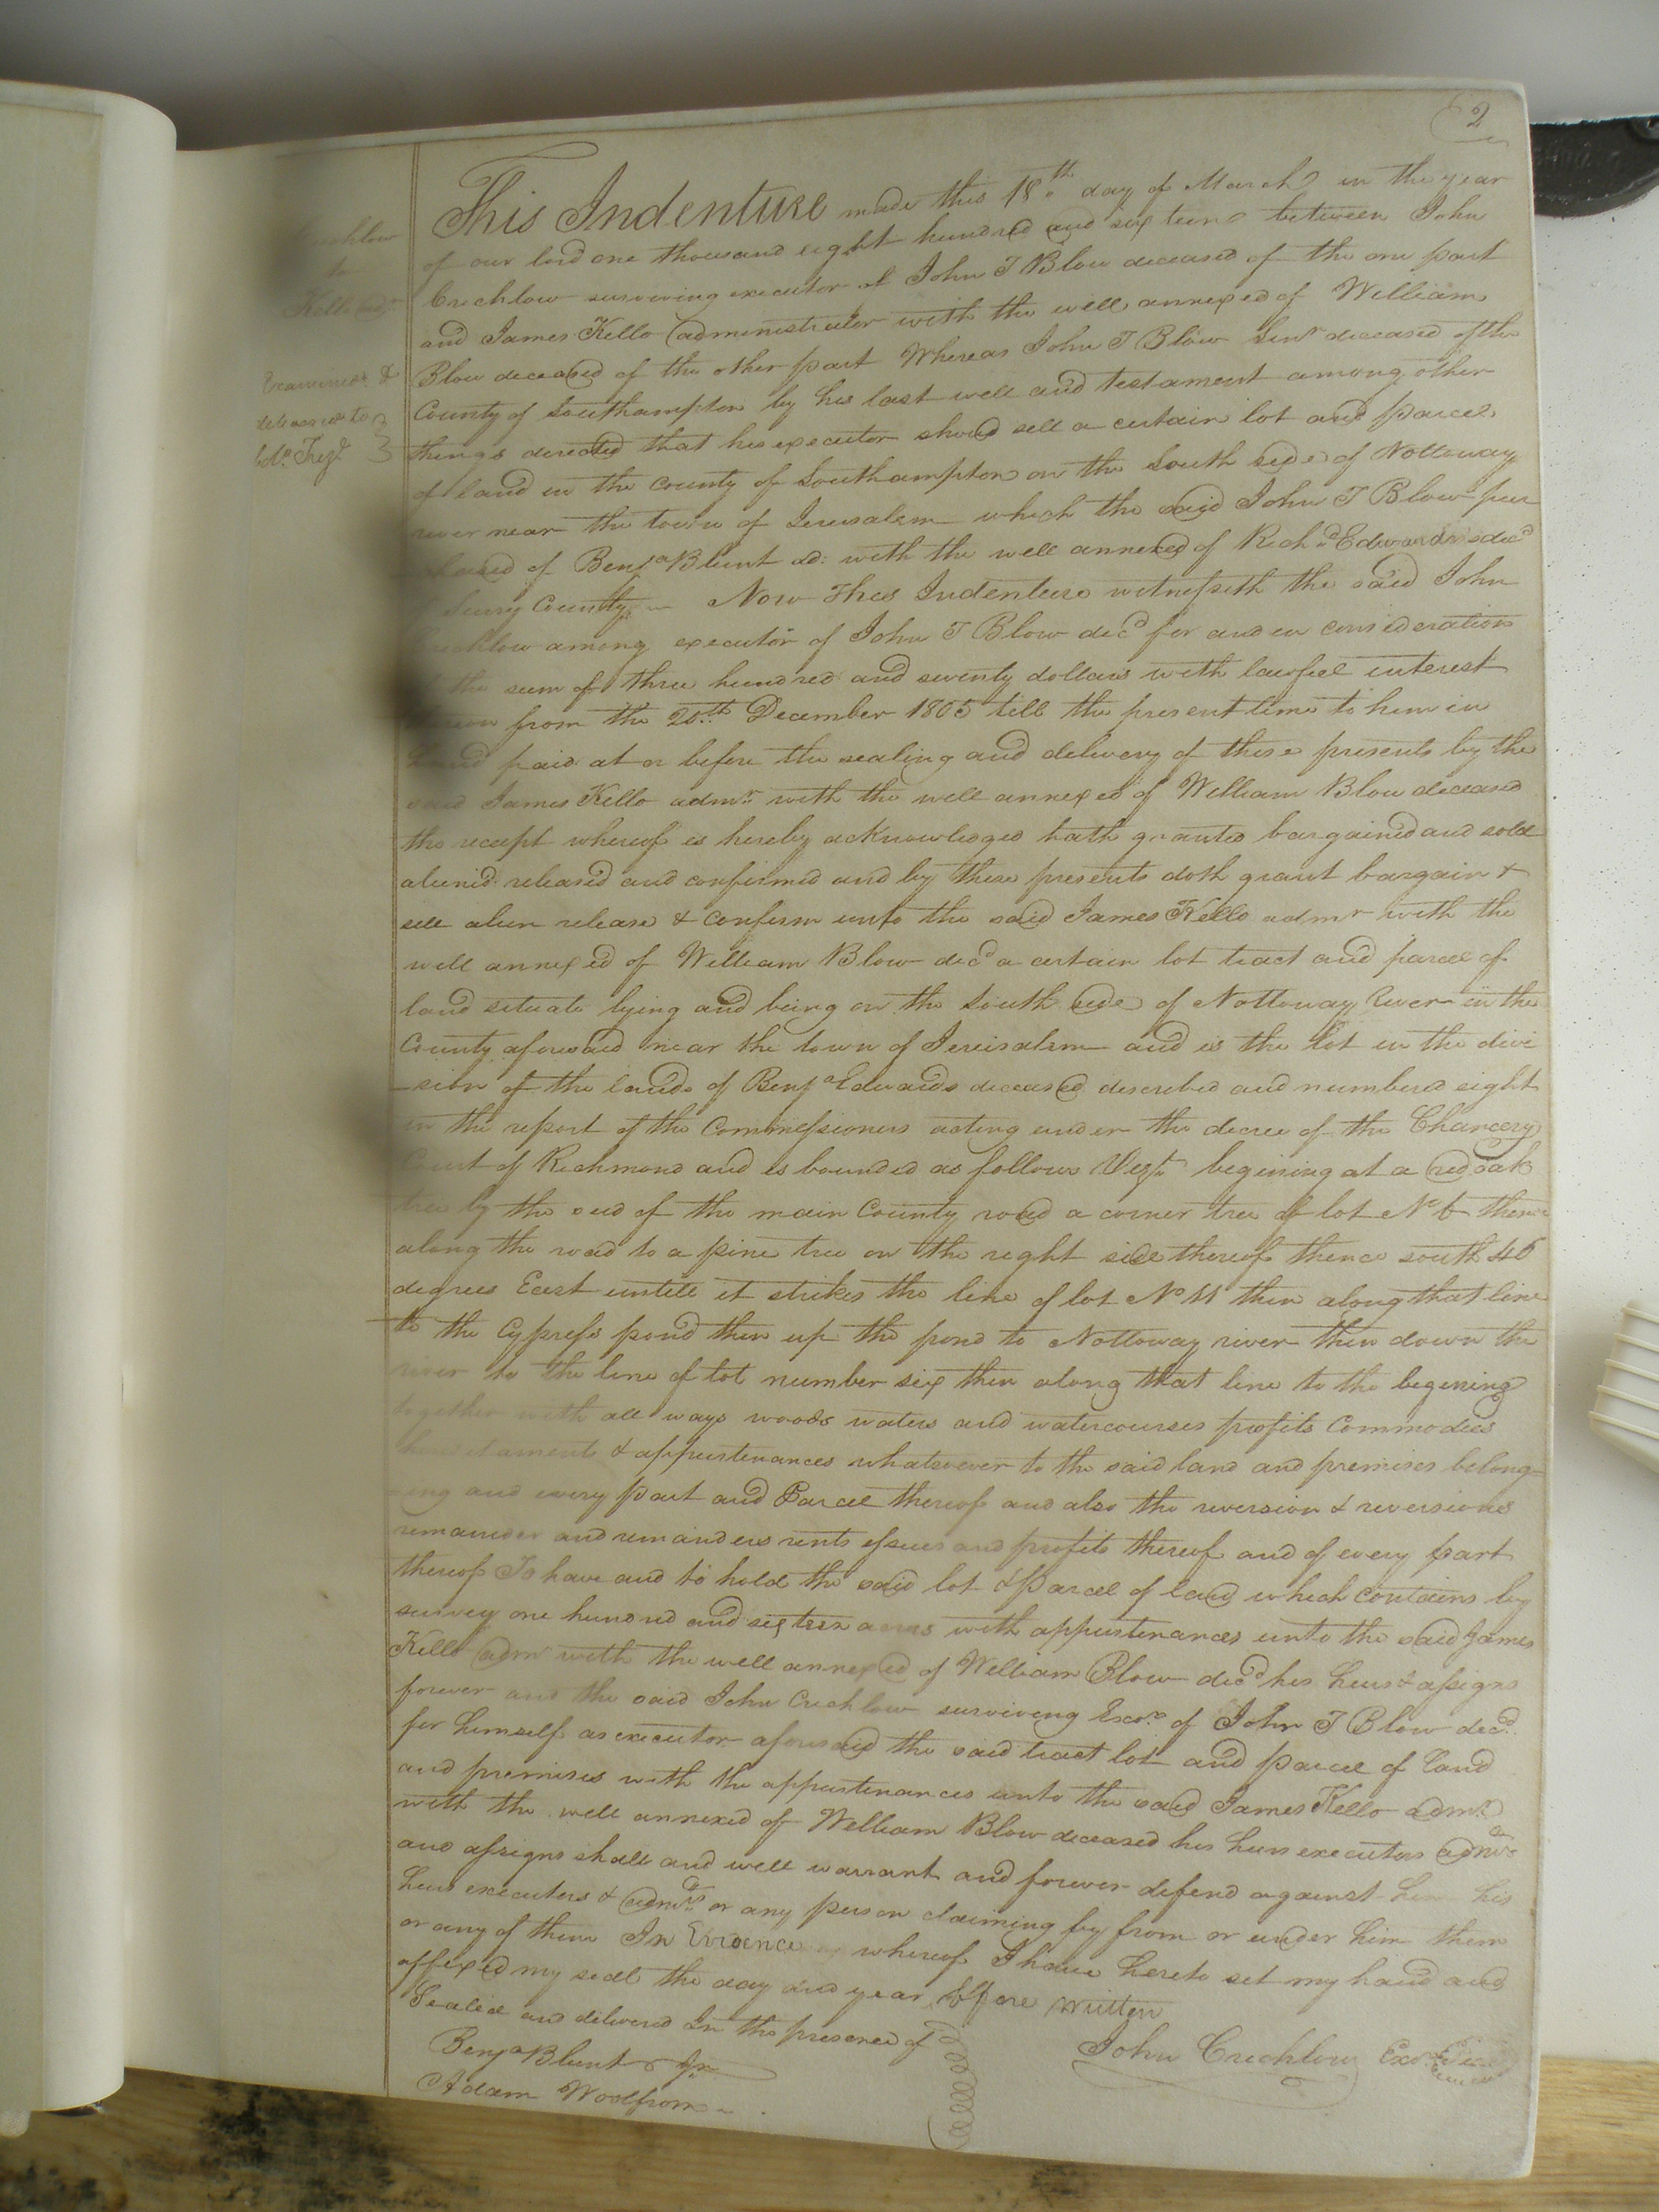 2
This Indenture made this 18th day of March in the year
of our lord one thousand eight hundred and sixteen between John
Crechlow surviving executor of John T Blow deceased of the one part
and James Kello administrator with the will annexed of William
Blow deceased of the other part Whereas John T Blow Senr deceased of the
County of Southampton by his last will and testament among other
things directed that his executor should sell a certain lot and parcel
of land in the County of Southampton on the South side of Nottoway
river near the town of Jerusalem which the said John T Blow pur
chased of Benja Blunt ad: with the will annexed of Richd Edwards decd
Surry County Now This Indenture witnesseth the said John
Crechlow among executor of John T Blow decd for and in consideration
the sum of three hundred and seventy dollars with lawful interest
from the 25th December 1805 till the present time to him in
hand paid at or before the sealing and delivery of these presents by the
said James Kello admr with the will annexed of William Blow deceased
the receipt whereof is hereby acknowledged hath granted bargained and sold
aliened released and confirmed and by these presents doth grant bargain &
sell alien release & confirm unto the said James Kello admr with the
will annexed of William Blow decd a certain lot tract and parcel of
land situate lying and being on the South side of Nottoway River in the
County aforesaid near the town of Jerusalem and is the lot in the divi
-sion of the lands of Benja Edwards deceased described and numbered eight
in the report of the Commissioners acting under the decree of the Chancery
Court of Richmond and is bounded as follows Vizt begining at a red oak
tree by the side of the main County road a corner tree of lot No 6 thence
along the road to a pine tree on the right side thereof thence south 46
degrees East untill it strikes the line of lot No 11 then along that line
to the Cypress pond then up the pond to Nottoway river then down the
river to the line of lot number six then along that line to the begining
together with all ways woods waters and watercourses profits Commodies
hereditaments & appurtenances whatsoever to the said land and premises belong-
-ing and every part and Parcel thereof and also the reversion & reversions
remainder and remainders rents issues and profits thereof and of every part
thereof To have and to hold the said lot & parcel of land which contains by
survey one hundred and sixteen acres with appurtenances unto the said James
Kello admr with the will annexed of William Blow decd his heirs & assigns
forever and the said John Crechlow surviving Exor of John T Blow decd
for himself as executor aforesaid the said tract lot and parcel of land
and premises with the appurtenances unto the said James Kello admr
with the will annexed of William Blow deceased his heirs executors admrs
and assigns shall and will warrant and forever defend against him his
heirs executors & admrs or any person claiming by from or under him them
or any of them In Evidence whereof I have hereto set my hand and
affixed my seal the day and year before written
Sealed and delivered In the presence of
John Crechlow Exor
Benja Blunt Jr
Adam Woolfrom
Crechlow
to
Kello adr
Examined &
delivered to